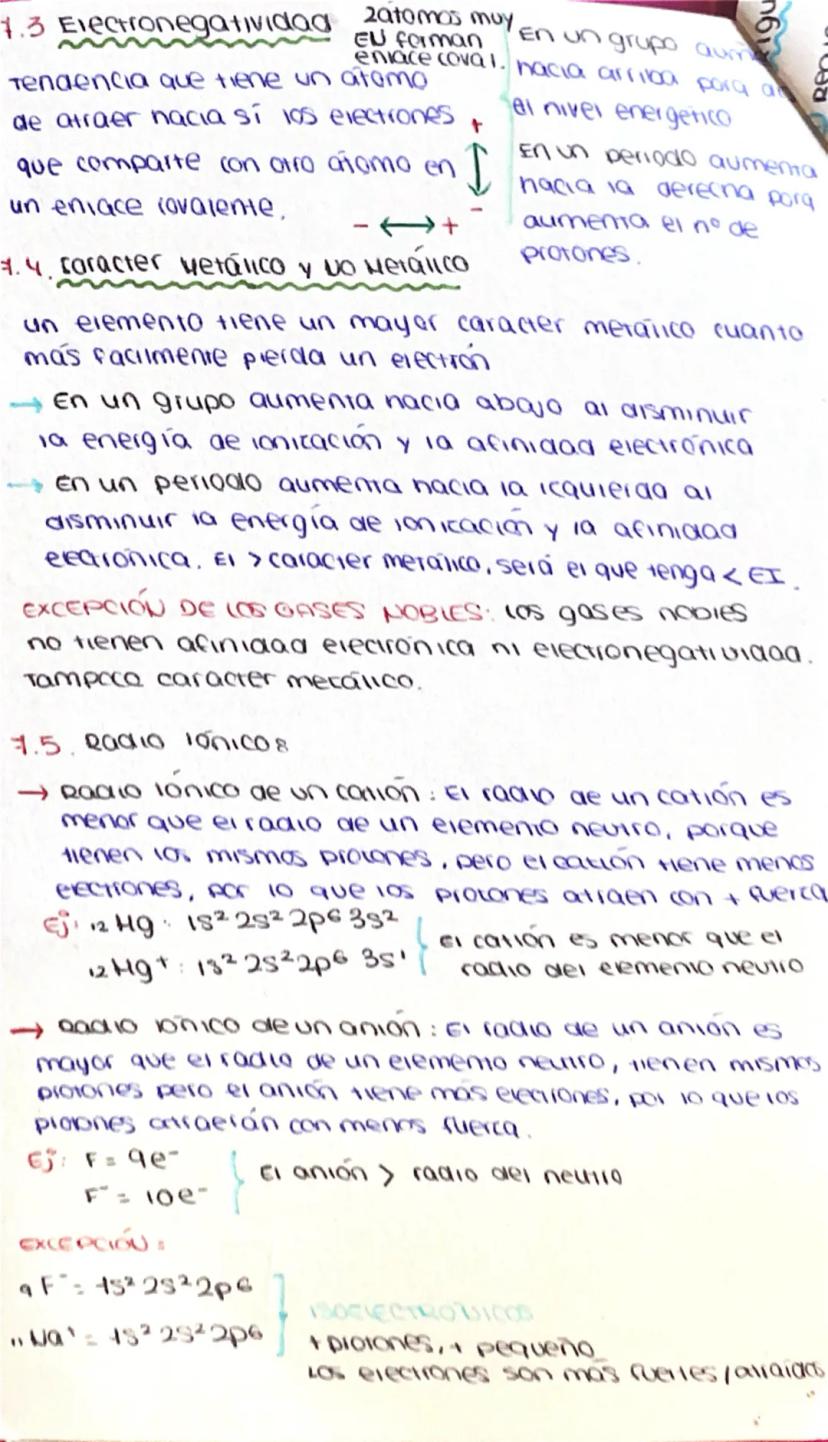 7.3 Electronegatividad
2átomos muy
EN forman
enlace coval.
Tendencia que tiene un átomo
de atraer hacia sí los electrones
que comparte con otro átomo en
un enlace covalente.
+
-
- ↔ +
En un grupo
hacia arriba porq
el nivel energético
En un periodo aumenta
hacia la derecha porq
aumenta el nº de
protones.
7.4. Caracter Metálico y No Metálico
un elemento tiene un mayor caracter metálico cuanto
más facilmente pierda un electrón
→ En un grupo aumenta hacia abajo al disminuir
la energía de ionización y la afinidad electrónica
→ En un periodo aumenta hacia la izquierda al
disminuir la energía de ionización y la afinidad
electrónica. El > caracter metálico, será el que tenga < EI.
EXCEPCIÓN DE LOS GASES NOBLES: Los gases nobles
no tienen afinidad electrónica ni electronegatividad.
Tampoco caracter metálico.
7.5. Radio iónico:
→ Radio iónico de un catión: El radio de un catión es
menor que el radio de un elemento neutro, porque
tienen los mismos protones, pero el catión tiene menos
electrones, por lo que los protones atraen con + fuerza
Ej: 12 Mg: 1s² 2s² 2p6 3s²
12 Mg+: 1s² 2s² 2p6 3s¹
El catión es menor que el
radio del elemento neutro
→ Radio iónico de un anión: El radio de un anión es
mayor que el radio de un elemento neutro, tienen mismos
protones pero el anión tiene más electrones, por lo que los
protones atraerán con menos fuerza.
Ej: F = 9e-
F- = 10e-
El anión > radio del neutro
EXCEPCIÓN:
9 F- = 1s² 2s² 2p6
11 Na+ = 1s² 2s² 2p6
ISOELECTRONICOS
+ protones, + pequeño
Los electrones son más fuertes/atraidos